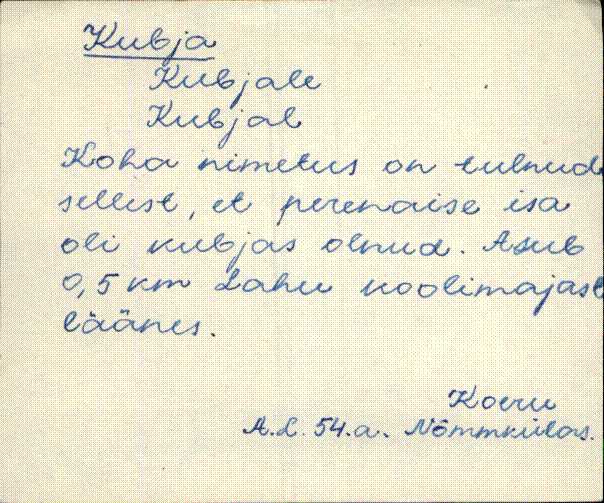 Kubja
Kubjale
Kubjal
Koha nimetus on tulnud
sellest, et perenaise isa
oli kubjas olnud. Asub
0,5 km Lahu koolimajast
läänes.
Koeru
A.L. 54.a. Nõmmkülas.